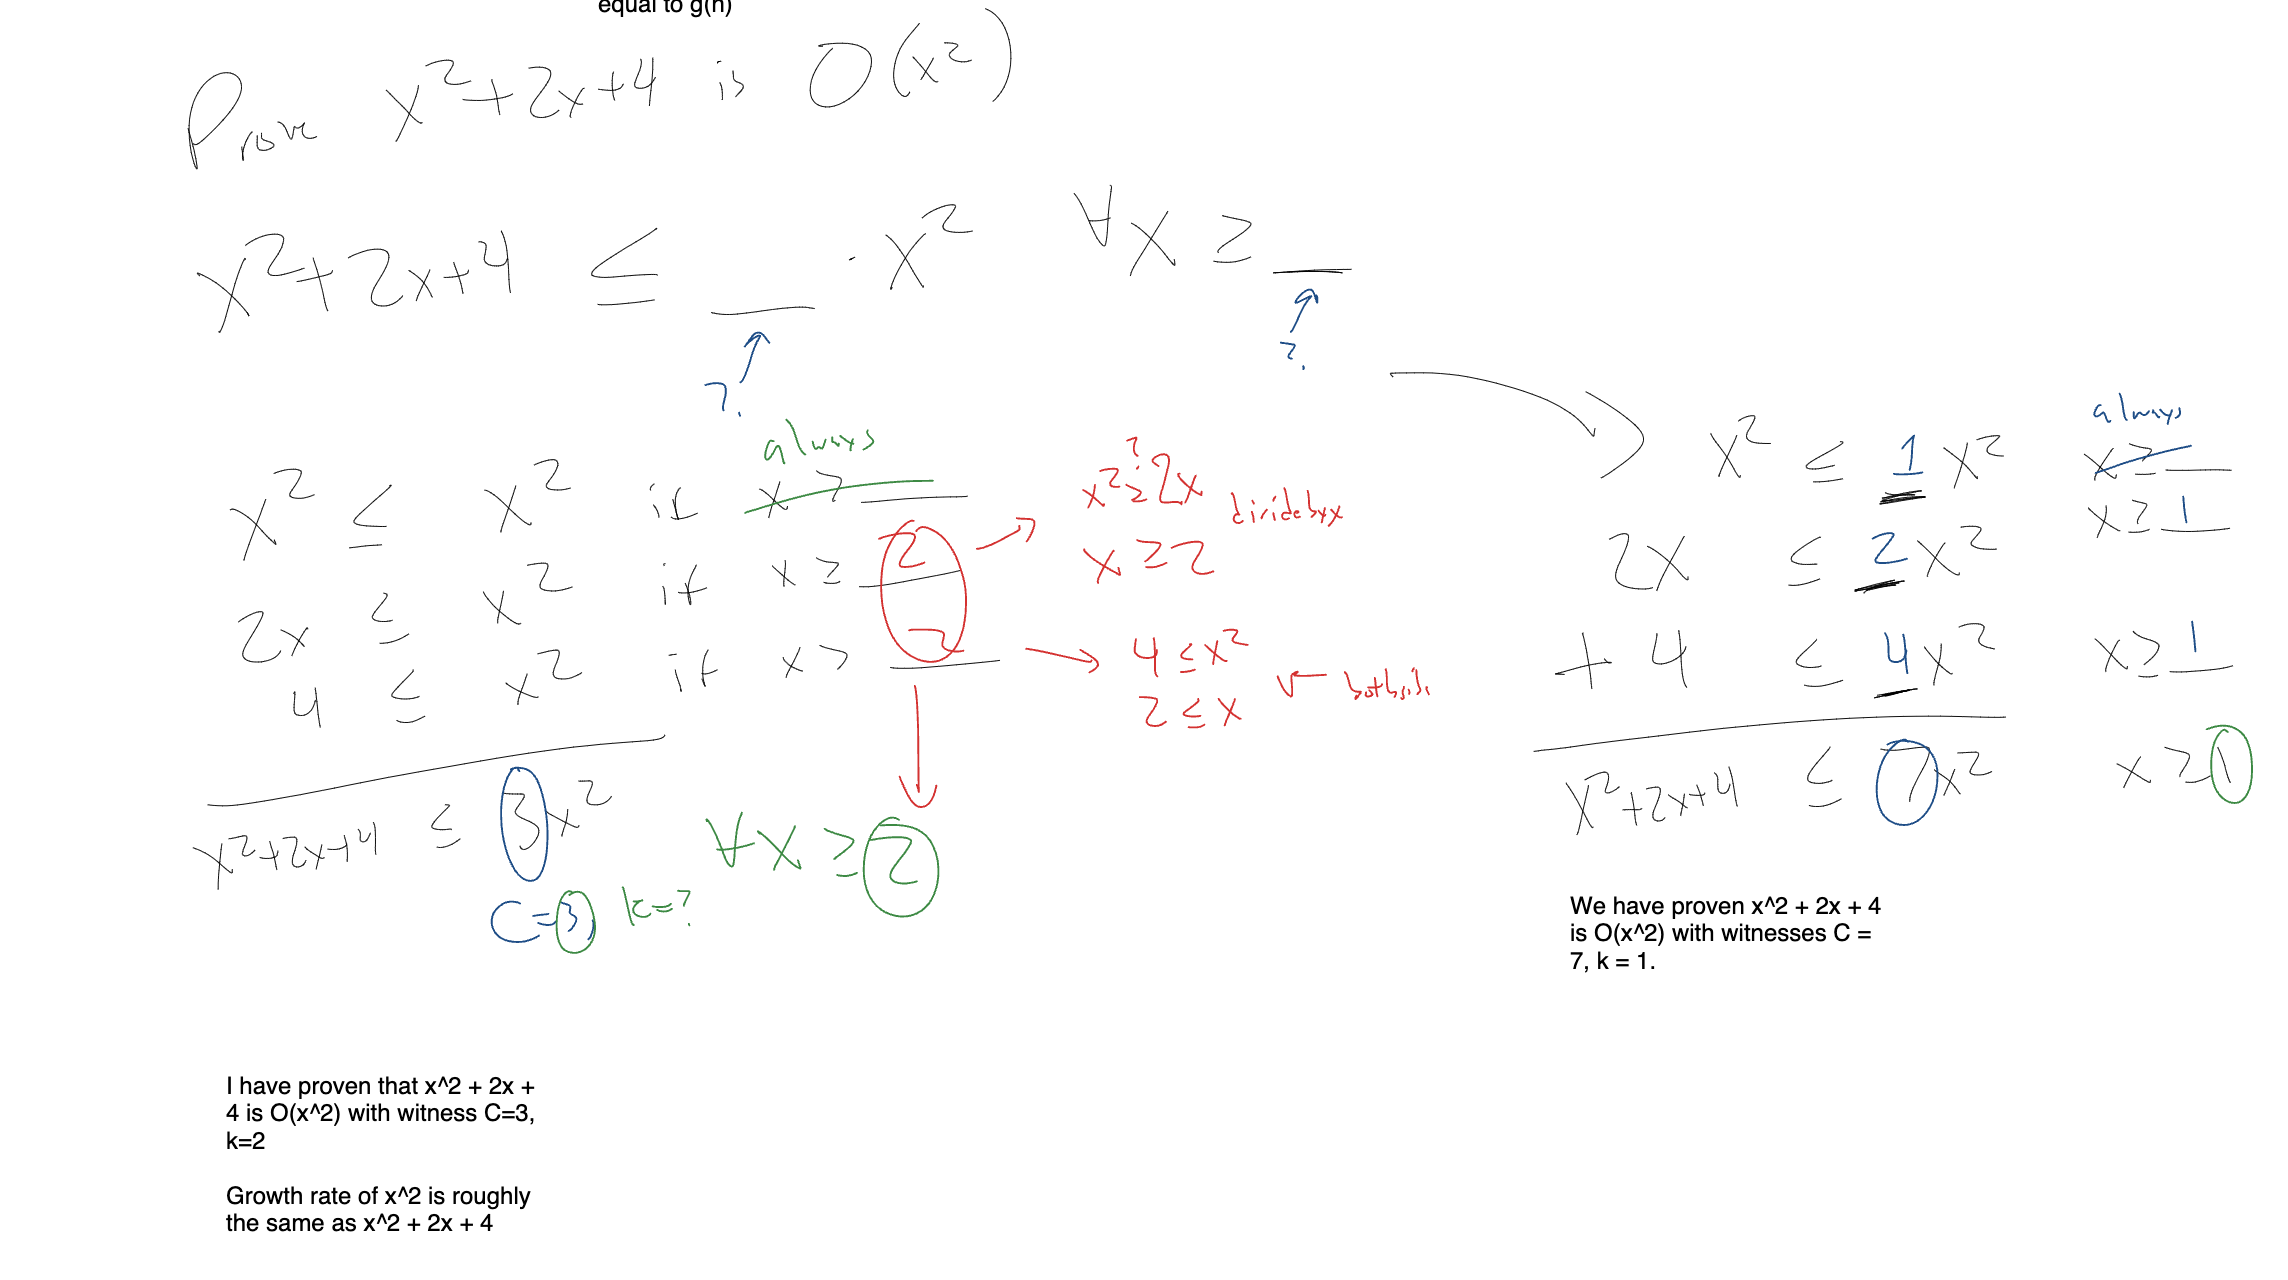 equal to g(n)
Prove x²+2x+4 is O(x²)
x²+2x+4 ≤ __ · x² ∀x ≥ __
? ?
always
x² ≤ x² if x ≥ __
2x ≤ x² if x ≥ 2
4 ≤ x² if x ≥ 2
x²+2x+4 ≤ 3x² ∀x ≥ 2
C=3, k=?
?
x² ≥ 2x divide by x
x ≥ 2
4 ≤ x²
2 ≤ x √ both sides
always
x² ≤ 1x² x ≥ __
2x ≤ 2x² x ≥ 1
+ 4 ≤ 4x² x ≥ 1
x²+2x+4 ≤ 7x² x ≥ 1
We have proven x^2 + 2x + 4
is O(x^2) with witnesses C =
7, k = 1.
I have proven that x^2 + 2x +
4 is O(x^2) with witness C=3,
k=2
Growth rate of x^2 is roughly
the same as x^2 + 2x + 4